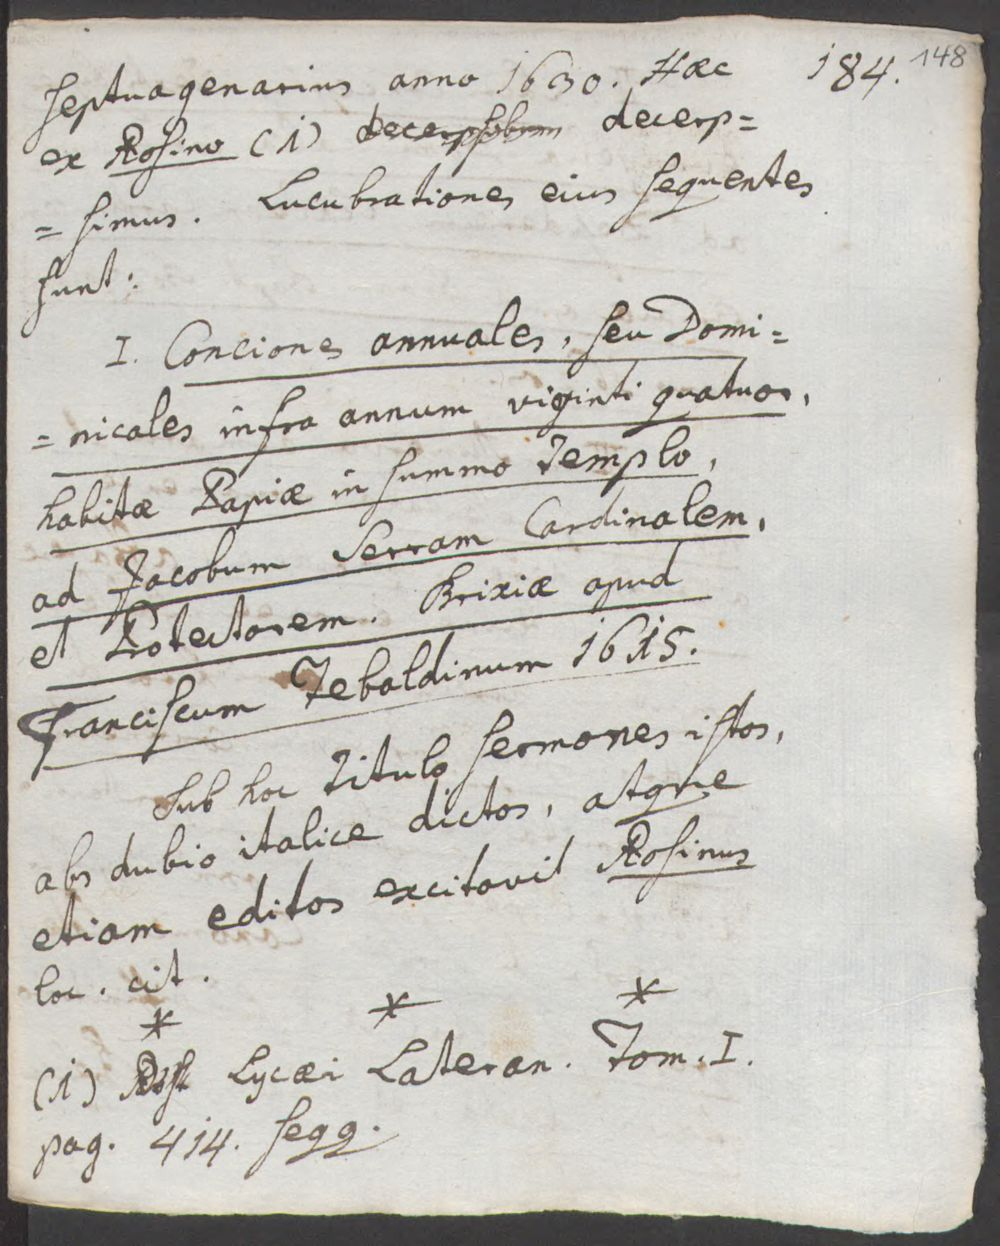 184. 148
septuagenarius anno 1630. Hæc
ex Rosino (1) decerp=
= simus. Lucubrationes eius sequentes
sunt:
I. Conciones annuales, seu Domi=
= nicales infra annum viginti quatuor,
habitæ Papiæ in summo Templo,
ad Jacobum Serram Cardinalem,
et Protectorem. Brixiæ apud
Franciscum Tebaldinum 1615.
Sub hoc Titulo sermones istos,
abs dubio italice dictos, atque
etiam editos excitavit Rosinus
loc. cit.
* * *
(1) Lycæi Lateran. Tom. I.
pag. 414. seqq.